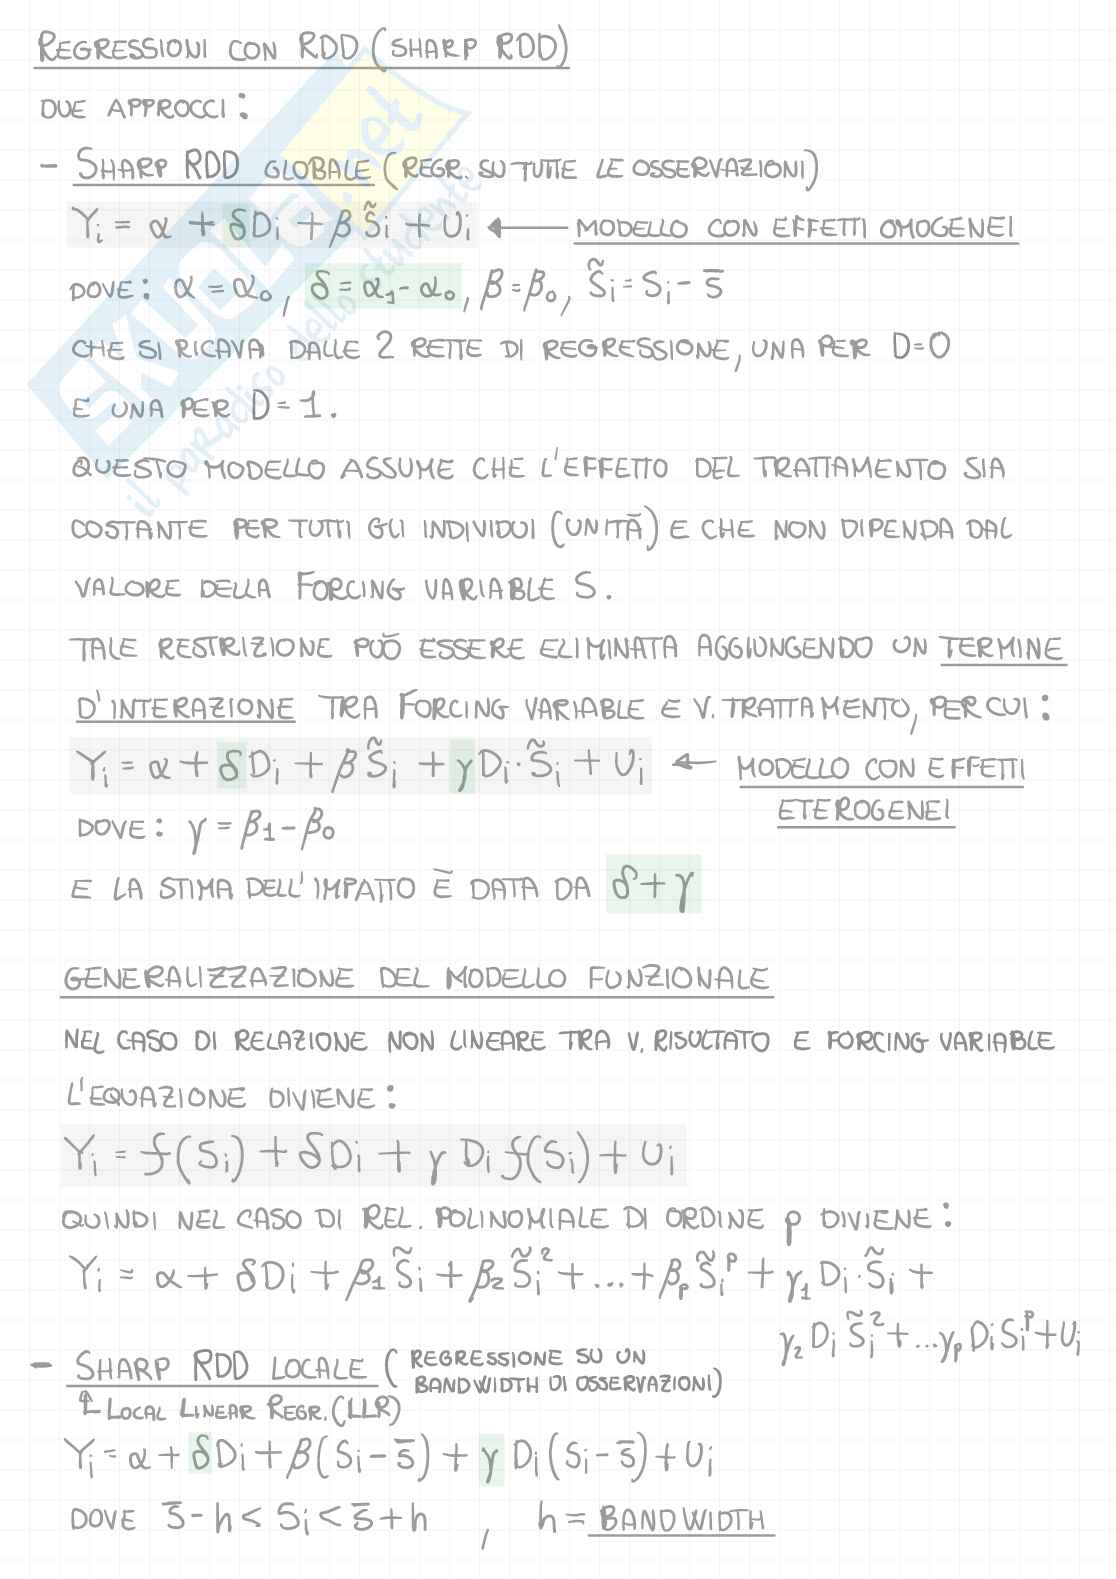 REGRESSIONI CON RDD (SHARP RDD)
DUE APPROCCI:
- SHARP RDD GLOBALE (REGR. SU TUTTE LE OSSERVAZIONI)
Yᵢ = α + δDᵢ + β S̃ᵢ + Uᵢ ← MODELLO CON EFFETTI OMOGENEI
DOVE: α = α₀, δ = α₁ - α₀, β = β₀, S̃ᵢ = Sᵢ - s̄
CHE SI RICAVA DALLE 2 RETTE DI REGRESSIONE, UNA PER D=0
E UNA PER D=1.
QUESTO MODELLO ASSUME CHE L'EFFETTO DEL TRATTAMENTO SIA
COSTANTE PER TUTTI GLI INDIVIDUI (UNITÀ) E CHE NON DIPENDA DAL
VALORE DELLA FORCING VARIABLE S.
TALE RESTRIZIONE PUÒ ESSERE ELIMINATA AGGIUNGENDO UN TERMINE
D'INTERAZIONE TRA FORCING VARIABLE E V. TRATTAMENTO, PER CUI:
Yᵢ = α + δDᵢ + β S̃ᵢ + γDᵢ·S̃ᵢ + Uᵢ ← MODELLO CON EFFETTI
ETEROGENEI
DOVE: γ = β₁ - β₀
E LA STIMA DELL'IMPATTO È DATA DA δ+γ
GENERALIZZAZIONE DEL MODELLO FUNZIONALE
NEL CASO DI RELAZIONE NON LINEARE TRA V. RISULTATO E FORCING VARIABLE
L'EQUAZIONE DIVIENE:
Yᵢ = f(Sᵢ) + δDᵢ + γ Dᵢ f(Sᵢ) + Uᵢ
QUINDI NEL CASO DI REL. POLINOMIALE DI ORDINE p DIVIENE:
Yᵢ = α + δDᵢ + β₁ S̃ᵢ + β₂ S̃ᵢ² + ... + βₚ S̃ᵢᵖ + γ₁ Dᵢ·S̃ᵢ +
γ₂ Dᵢ S̃ᵢ² + ... γₚ DᵢSᵢᵖ + Uᵢ
- SHARP RDD LOCALE (REGRESSIONE SU UN
BANDWIDTH DI OSSERVAZIONI)
↳ LOCAL LINEAR REGR. (LLR)
Yᵢ = α + δDᵢ + β(Sᵢ - s̄) + γ Dᵢ(Sᵢ - s̄) + Uᵢ
DOVE s̄ - h < Sᵢ < s̄ + h , h = BANDWIDTH
SKUOLA.net
il paradiso dello studente